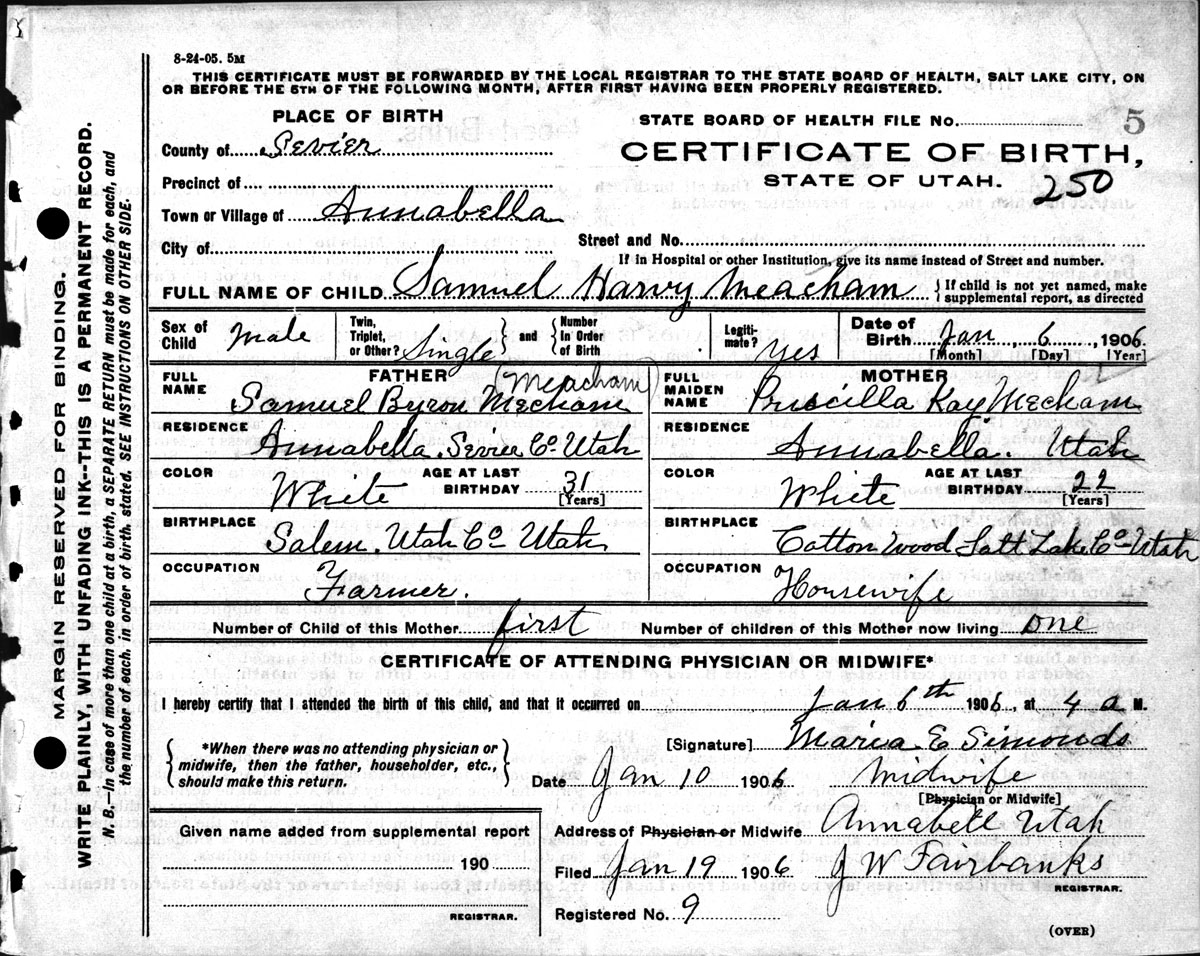 8-24-05. 5M
THIS CERTIFICATE MUST BE FORWARDED BY THE LOCAL REGISTRAR TO THE STATE BOARD OF HEALTH, SALT LAKE CITY, ON
OR BEFORE THE 5TH OF THE FOLLOWING MONTH, AFTER FIRST HAVING BEEN PROPERLY REGISTERED.
PLACE OF BIRTH
STATE BOARD OF HEALTH FILE No. 5
County of Sevier
CERTIFICATE OF BIRTH,
STATE OF UTAH. 250
Precinct of
Town or Village of Annabella
City of
Street and No.
If in Hospital or other Institution, give its name instead of Street and number.
FULL NAME OF CHILD Samuel Harvy Meacham {If child is not yet named, make
supplemental report, as directed
Sex of Child Male
Twin, Triplet, or Other? Single } and { Number In Order of Birth
Legitimate? Yes
Date of Birth Jan 6 1906
[Month] [Day] [Year]
FATHER
FULL NAME Samuel Byron Mecham (Meacham)
RESIDENCE Annabella Sevier Co Utah
COLOR White AGE AT LAST BIRTHDAY 31 [Years]
BIRTHPLACE Salem Utah Co Utah
OCCUPATION Farmer.
MOTHER
FULL MAIDEN NAME Priscilla Kay Mecham
RESIDENCE Annabella. Utah
COLOR White AGE AT LAST BIRTHDAY 22 [Years]
BIRTHPLACE Cotton Wood Salt Lake Co Utah
OCCUPATION Housewife
Number of Child of this Mother first Number of children of this Mother now living one
CERTIFICATE OF ATTENDING PHYSICIAN OR MIDWIFE*
I hereby certify that I attended the birth of this child, and that it occurred on Jan 6th 1906, at 4 a M.
{*When there was no attending physician or
midwife, then the father, householder, etc.,
should make this return.}
[Signature] Maria E Simonds
Date Jan 10 1906 Midwife
[Physician or Midwife]
Given name added from supplemental report
190
REGISTRAR.
Address of Physician or Midwife Annabell Utah
Filed Jan 19 1906 J W Fairbanks
REGISTRAR.
Registered No. 9
(OVER)
MARGIN RESERVED FOR BINDING.
WRITE PLAINLY, WITH UNFADING INK--THIS IS A PERMANENT RECORD.
N. B.--In case of more than one child at a birth, a SEPARATE RETURN must be made for each, and
the number of each, in order of birth, stated. SEE INSTRUCTIONS ON OTHER SIDE.